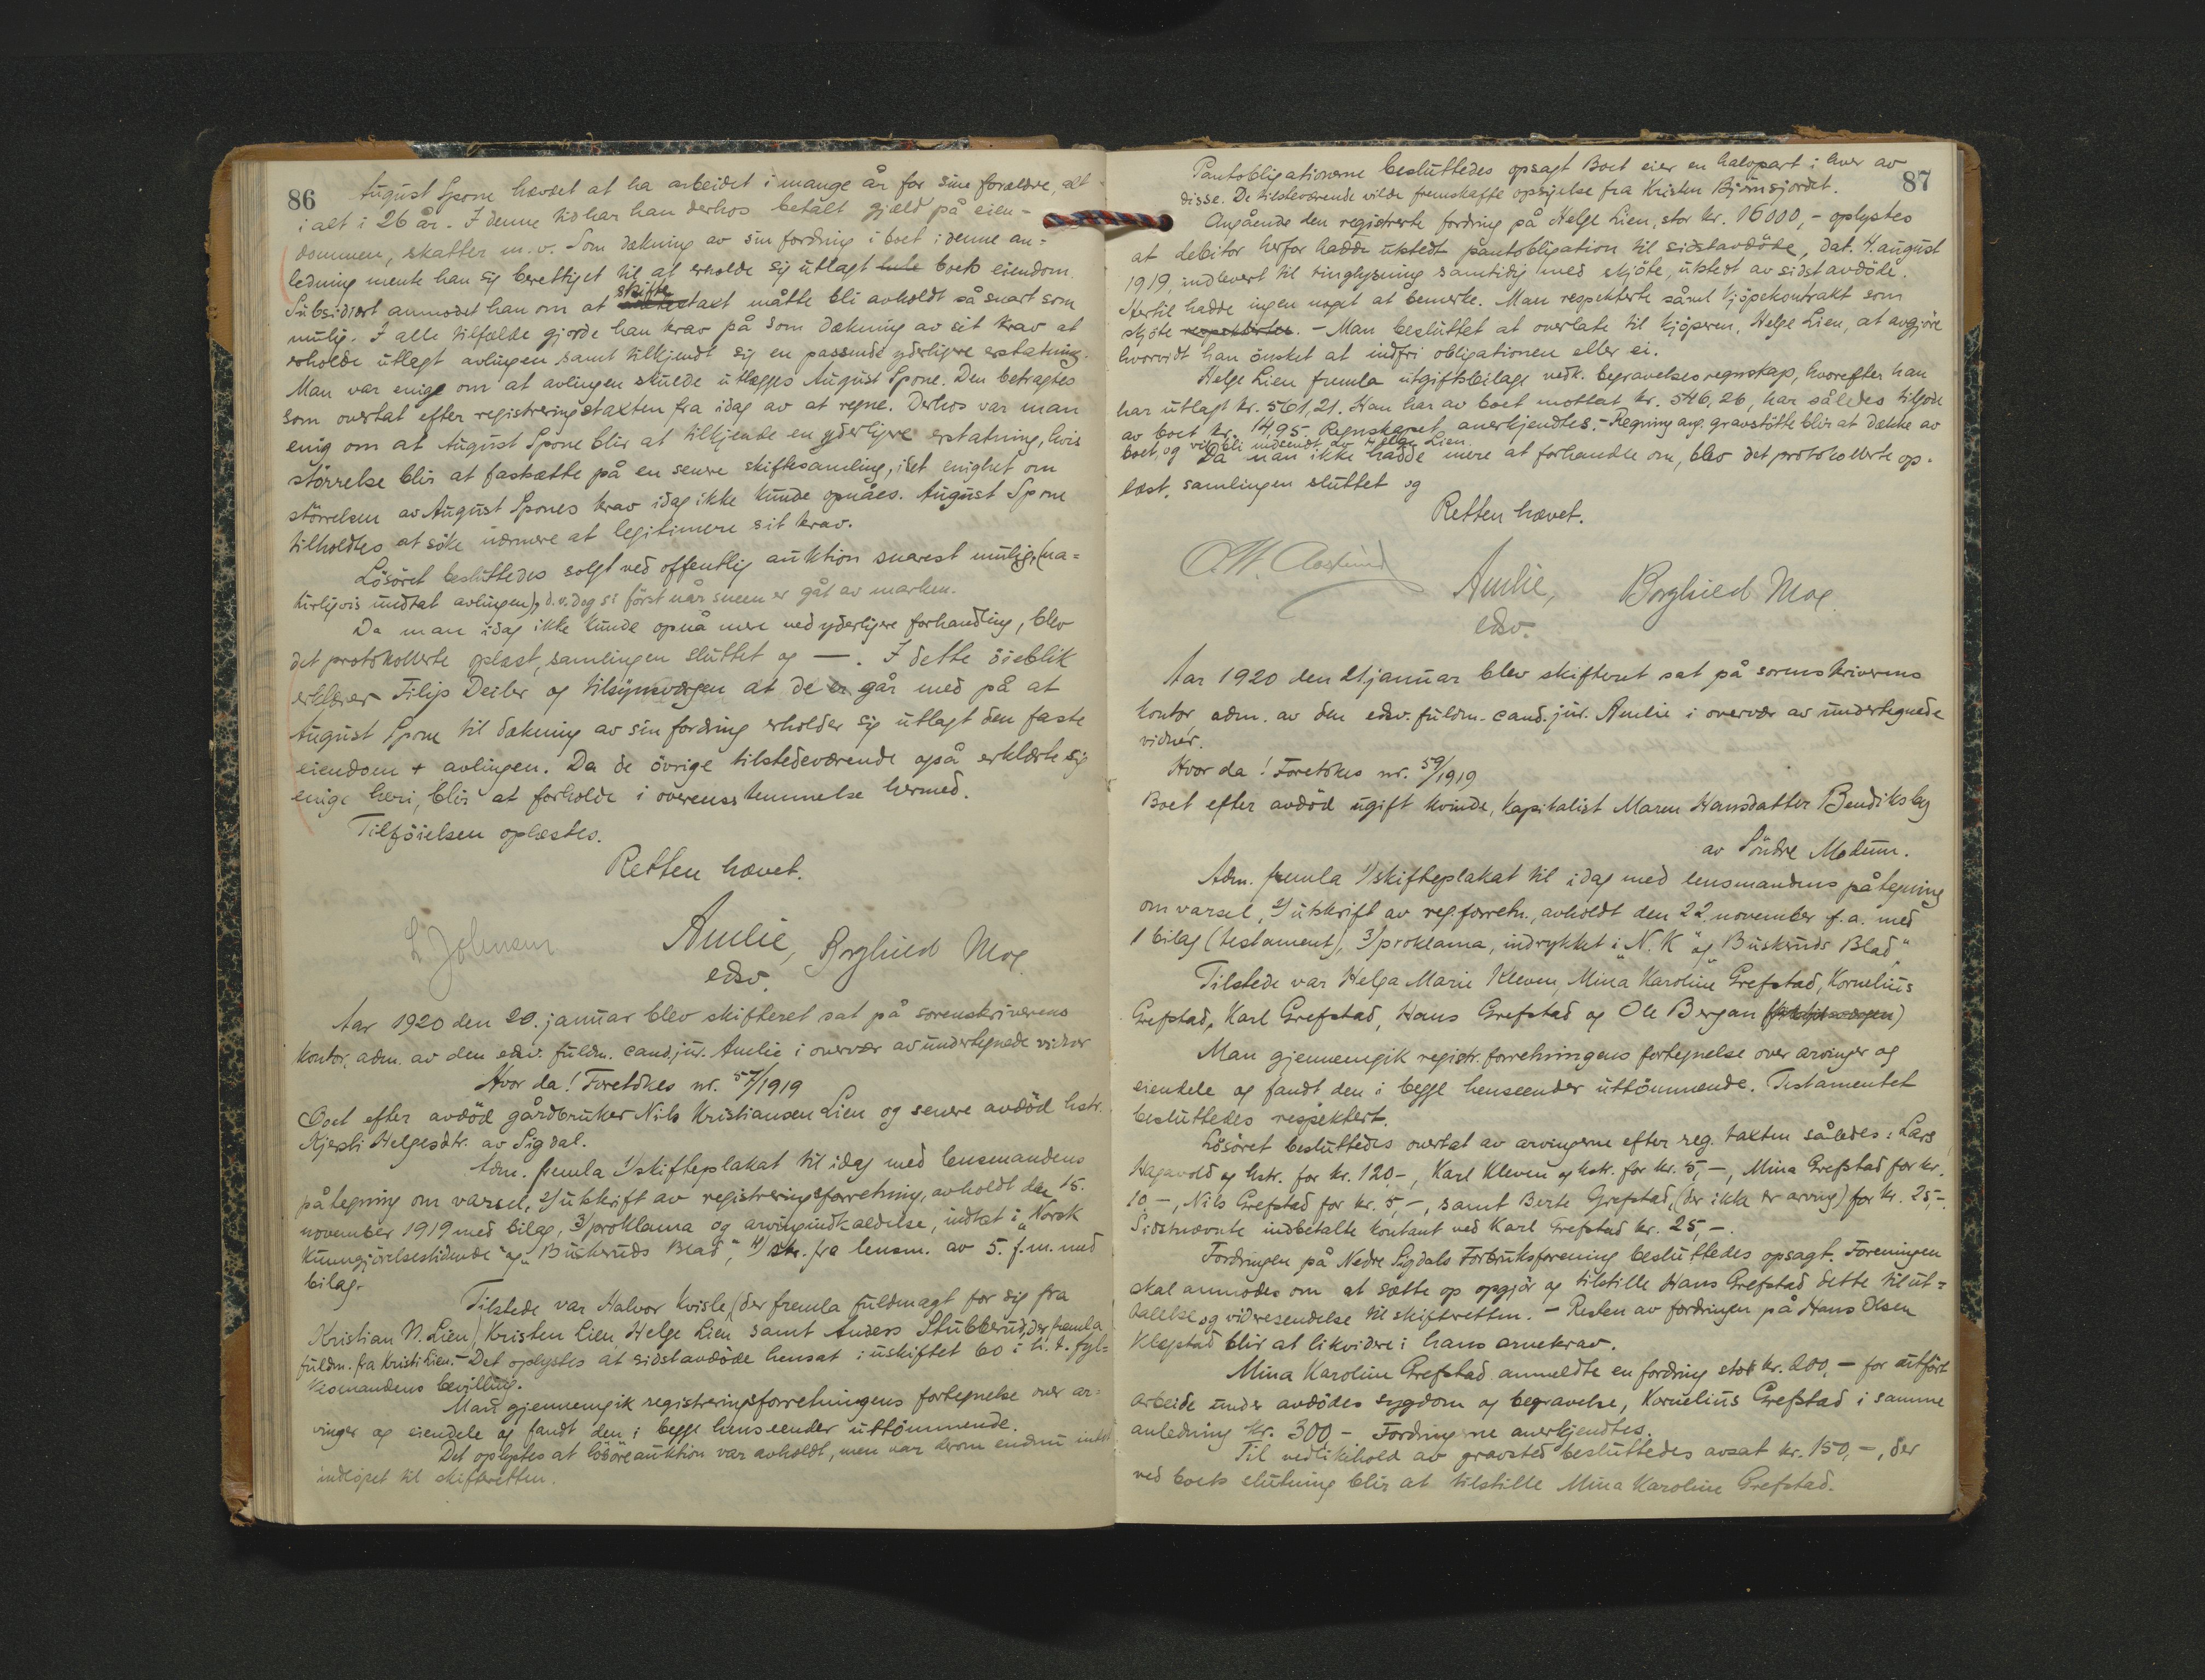 86
August Spone hævdet at ha arbeidet i mange år for sine forældre, alt
i alt i 26 år. I denne tid har han derhos betalt gjæld på eien-
dommen, skatter m.v. Som dækning av sin fordring i boet i denne an-
ledning mente han sig berettiget til at erholde sig utlagt hele boets eiendom.
Subsidiært anmodet han om at skifte taxt måtte bli avholdt så snart som
mulig. I alle tilfælde gjorde han krav på som dækning av sit krav at
erholde utlagt avlingen samt tilkjendt sig en passende yderligere erstatning.
Man var enige om at avlingen skulde utlægges August Spone. Den betragtes
som overtat efter registreringstaxten fra idag av at regne. Derhos var man
enig om at August Spone blir at tilkjende en yderligere erstatning, hvis
størrelse blir at fastsætte på en senere skiftesamling, idet enighet om
størrelsen av August Spones krav idag ikke kunde opnåes. August Spone
tilholdtes at søke nærmere at legitimere sit krav.
Løsøret besluttedes solgt ved offentlig auktion snarest mulig, (na=
turligvis undtat avlingen), d.v. dog si først når sneen er gåt av marken.
Da man idag ikke kunde opnå mere ved yderligere forhandling, blev
det protokollerte oplæst, samlingen sluttet og —. I dette øieblik
erklærer Filip Deiler og tilsynsværgen at de er går med på at
August Spone til dækning av sin fordring erholder sig utlagt den faste
eiendom + avlingen. Da de övrige tilstedeværende også erklærte sig
enige heri, blir at forholde i overensstemmelse hermed.
Tilføielsen oplæstes.
Retten hævet.
L Johnsen Amlie, Borghild Moe.
edsv.
Aar 1920 den 20. januar blev skifteret sat på sorenskriverens
kontor, adm. av den edsv. fuldm. cand. jur. Amlie i overvær av undertegnede vidner
Hvor da! Foretokes nr. 57/1919
Boet efter avdöd gårdbruker Nils Kristiansen Lien og senere avdöd hstr.
Kjersti Helgesdtr. av Sigdal.
Adm. fremla 1/ skifteplakat til idag med lensmandens
påtegning om varsel, 2/ utskrift av registreringsforretning, avholdt den 15.
november 1919 med bilag, 3/ proklama og arvingindkaldelse, indtat i „Norsk
Kunngjörelsestidende" og „Buskeruds Blad", 4/ skr. fra lensm. av 5. f.m. med
bilag.
Tilstede var Halvor Kvisle (der fremla fuldmagt for sig fra
Kristian N. Lien) Kristen Lien Helge Lien samt Anders Stubberud, der fremla
fuldm. fra Kristi Lien. - Det oplystes at sidstavdöde hensat i uskiftet bo i h.t. fyl=
kesmandens bevilling.
Man gjennemgik registreringsforretningens fortegnelse over ar=
vinger og eiendele og fandt den i begge henseender uttömmende.
Det oplystes at lösöreauktion var avholdt, men var derom endnu intet
indlöpet til skifteretten.
87
Pantobligationerne besluttedes opsagt. Boet eier en halvpart i hver av
disse. De tilstedeværende vilde fremskaffe opsigelse fra Kristen Bjørnsjordet.
Angående den registrerte fordring på Helge Lien, stor kr. 16000,- oplystes
at debitor herfor hadde utstedt pantobligation til sidstavdöde, dat. 4. august
1919, indlevert til tinglysning samtidig med skjöte, utstedt av sidstavdöde.
Hertil hadde ingen noget at bemerke. Man respekterte såvel kjöpekontrakt som
skjöte respekterter. - Man besluttet at overlate til kjöperen, Helge Lien, at avgjöre
hvorvidt han önsket at indfri obligationen eller ei.
Helge Lien fremla utgiftsbilage vedk. begravelsesregnskap, hvorefter han
har utlagt kr. 561,21. Han har av boet mottat kr. 546,26, har således tilgode
av boet kr. 14,95. Regnskapet anerkjendtes. - Regning ang. gravstötte blir at dække av
boet, og vil bli indsendt av Helge Lien.
Da man ikke hadde mere at forhandle om, blev det protokollerte op-
læst, samlingen sluttet og
Retten hævet.
Amlie, Borghild Moe.
edsv.
Aar 1920 den 21 januar blev skifteret sat på sorenskriverens
kontor, adm. av den edsv. fuldm. cand. jur. Amlie i overvær av undertegnede
vidner.
Hvor da! Foretokes nr. 59/1919
Boet efter avdöd ugift kvinde, kapitalist Maren Hansdatter Bendiksby
av Söndre Modum.
Adm. fremla 1/ skifteplakat til idag med lensmandens påtegning
om varsel, 2/ utskrift av reg.forretn., avholdt den 22. november f.a. med
1 bilag (testament), 3/ proklama, indrykket i „N. K" og „Buskeruds Blad"
Tilstede var Helga Marie Kleven, Mina Karoline Grefstad, Kornelius
Grefstad, Karl Grefstad, Hans Grefstad og Ole Bergan
Man gjennemgik registr.forretningens fortegnelse over arvinger og
eiendele og fandt den i begge henseender uttömmende. Testamentet
besluttedes respektert.
Lösöret besluttedes overtat av arvingerne efter reg. taxten således: Lars
Hagavold og hstr. for kr. 120,-, Karl Kleven og hstr. for kr. 5,-, Mina Grefstad for kr.
10,-, Nils Grefstad for kr. 5,-, samt Berte Grefstad, (der ikke er arving) for kr. 25,-.
Sidstnævnte indbetalte kontant ved Karl Grefstad kr. 25,-.
Fordringen på Nedre Sigdals Forbruksforening besluttedes opsagt. Foreningen
skal anmodes om at sætte op opgjör og tilstille Hans Grefstad dette til ut=
talelse og videresendelse til skifteretten. - Resten av fordringen på Hans Olsen
Klapstad blir at likvidere i hans arvekrav.
Mina Karoline Grefstad anmeldte en fordring stor kr. 200,- for utfört
arbeide under avdödes sygdom og begravelse, Kornelius Grefstad i samme
anledning kr. 300 - Fordringerne anerkjendtes.
Til vedlikehold av gravsted besluttedes avsat kr. 150,-, der
ved boets slutning blir at tilstille Mina Karoline Grefstad.